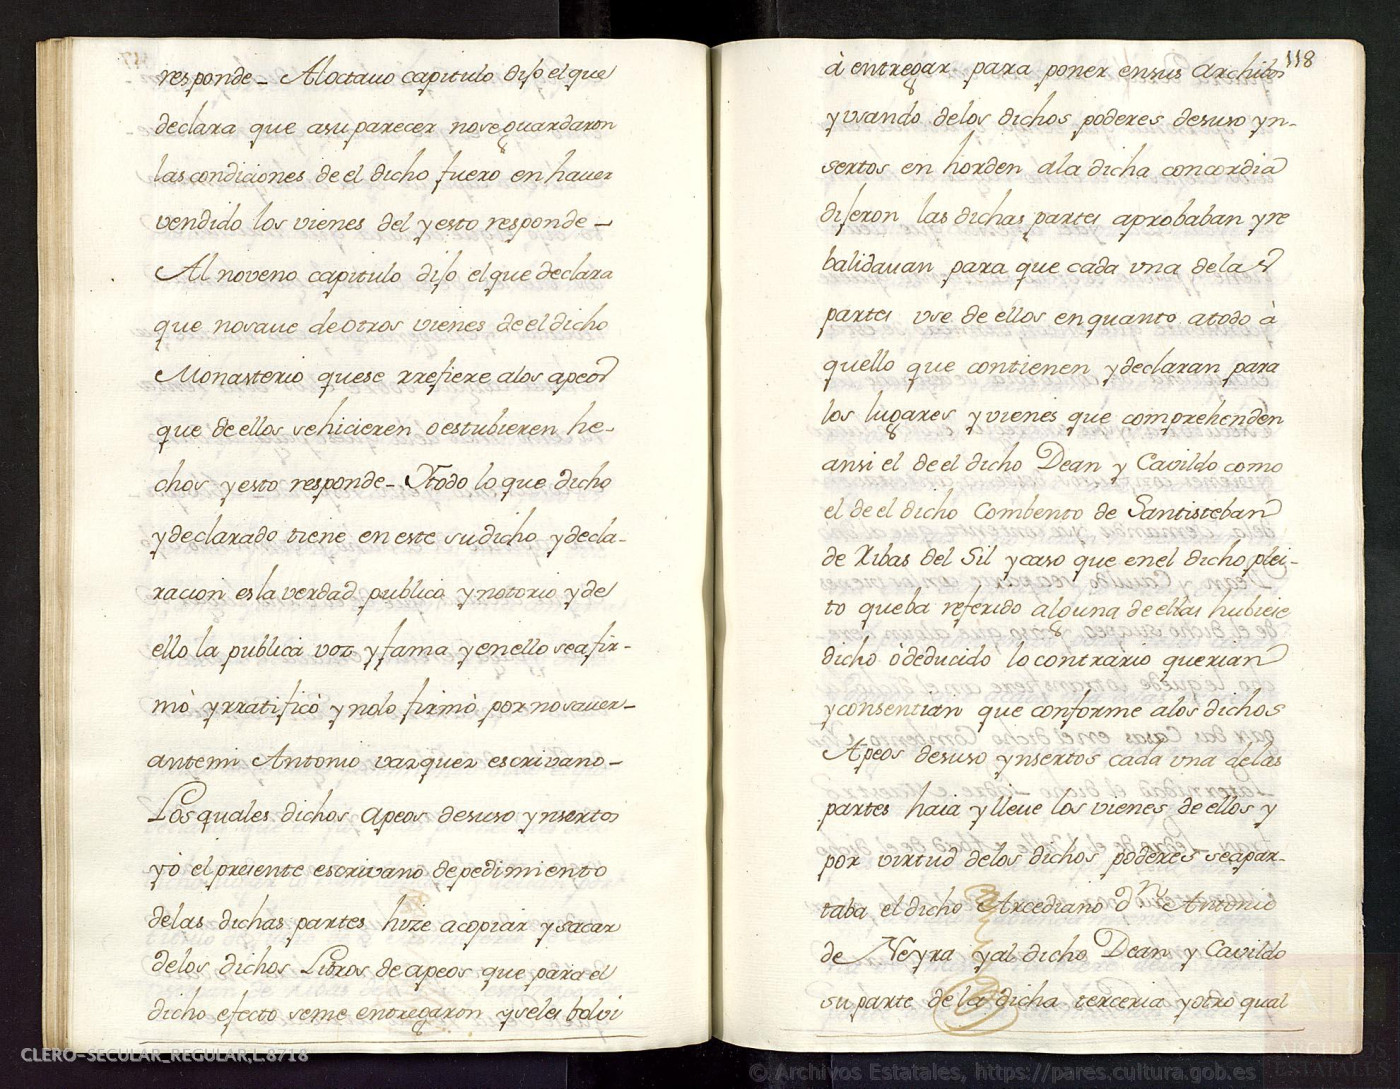 responde – Al octauo capitulo dijo el que
declara que asu parecer nose guardaron
las condiciones de el dicho fuero en hauer
vendido los vienes del y esto responde –
Al noveno capitulo dijo elque declara
que nosaue de otros vienes de el dicho
Monasterio quese rrefiere alos apeos
que de ellos se hicieren o estubieren he-
chos y esto responde – Ytodo lo que dicho
y declarado tiene en este su dicho y decla-
racion es la verdad publico y notorio y de
ello la publica voz y fama y en ello se afir-
mò y rratificò y nolo firmò por no sauer –
antemi Antonio vazquez escrivano –
Los quales dichos apeos desuso ynsertos
yò el presente escrivano de pedimiento
delas dichas partes hize acopiar y sacar
delos dichos Libros de apeos que para el
dicho efecto seme entregaron y se los bolvi
118
à entregar para poner ensus Archibos
y vsando delos dichos poderes desuso yn-
sertos en horden ala dicha concordia
dijeron las dichas partes aprobaban y re
balidauan para que cada vna de las
partes vse de ellos en quanto a todo à
quello que contienen y declaran para
los lugares y vienes que comprehenden
ansi el de el dicho Dean y Cavildo como
el de el dicho Combento de Santisteban
de Ribas del Sil y caso que enel dicho plei-
to que ba referido alguna de ellas hubiese
dicho ò deducido lo contrario querian
y consentian que conforme alos dichos
Apeos desuso ynsertos cada vna delas
partes haia y lleue los vienes de ellos y
por virtud delos dichos poderes se apar-
taba el dicho Arcediano Dn Antonio
de Neyra y al dicho Dean y Cavildo
su parte de la dicha terceria y otro qual
CLERO-SECULAR_REGULAR,L.8718
© Archivos Estatales, https://pares.cultura.gob.es
ARCHIVOS
ESTATALES